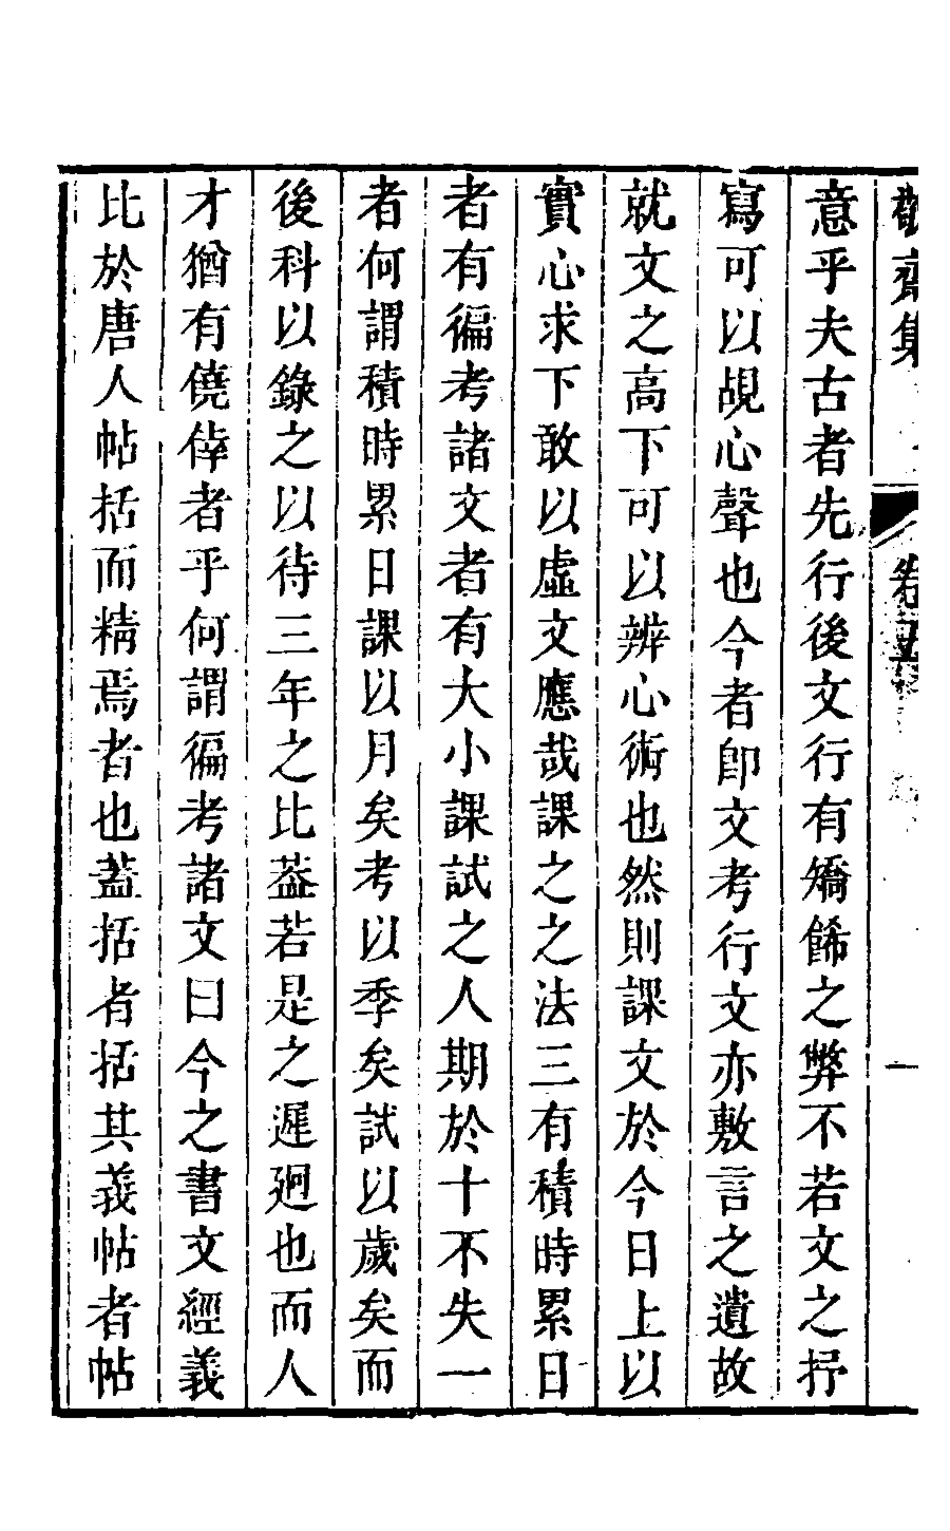 齋集 卷 一
意乎夫古者先行後文行有矯餙之弊不若文之抒
寫可以覘心聲也今者卽文考行文亦敷言之遺故
就文之高下可以辨心術也然則課文於今日上以
實心求下敢以虛文應哉課之之法三有積時累日
者有徧考諸文者有大小課試之人期於十不失一
者何謂積時累日課以月矣考以季矣試以歲矣而
後科以錄之以待三年之比葢若是之遲廻也而人
才猶有僥倖者乎何謂徧考諸文曰今之書文經義
比於唐人帖括而精焉者也蓋括者括其義帖者帖